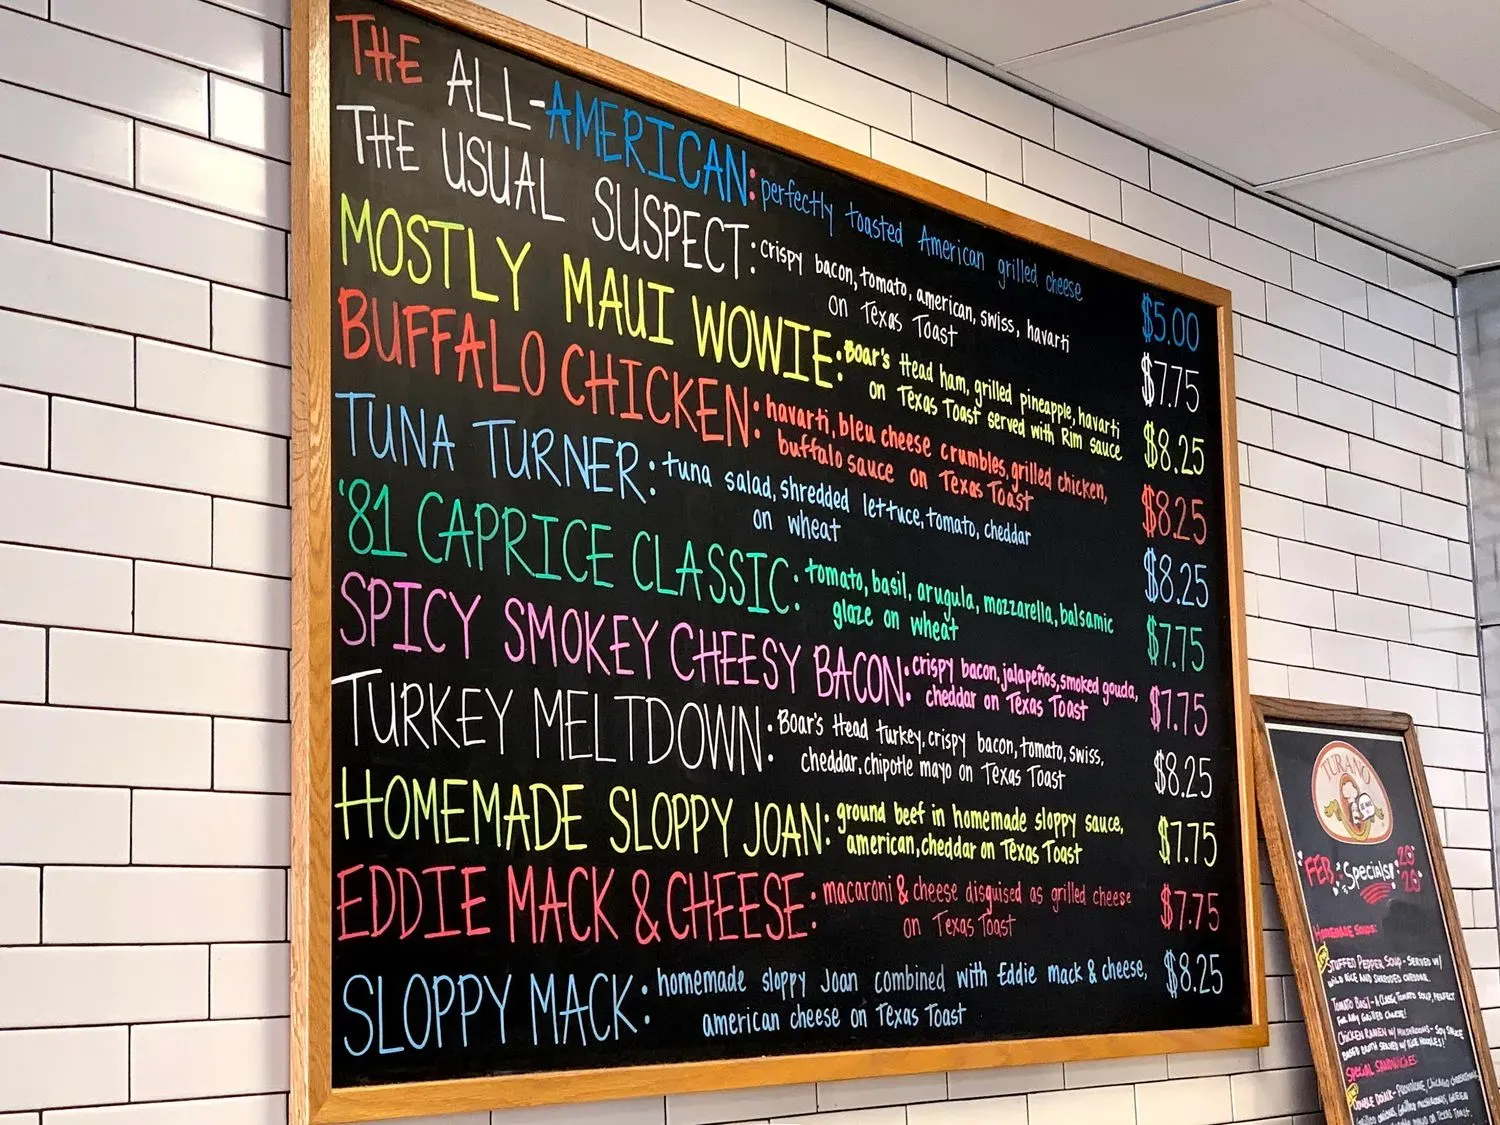 THE ALL-AMERICAN: perfectly toasted American grilled cheese $5.00
THE USUAL SUSPECT: crispy bacon, tomato, american, swiss, havarti $7.75
on Texas Toast
MOSTLY MAUI WOWIE: Boar's Head ham, grilled pineapple, havarti $8.25
on Texas Toast served with Rim sauce
BUFFALO CHICKEN: havarti, bleu cheese crumbles, grilled chicken, $8.25
buffalo sauce on Texas Toast
TUNA TURNER: tuna salad, shredded lettuce, tomato, cheddar $8.25
on wheat
'81 CAPRICE CLASSIC: tomato, basil, arugula, mozzarella, balsamic $7.75
glaze on wheat
SPICY SMOKEY CHEESY BACON: crispy bacon, jalapeños, smoked gouda, $7.75
cheddar on Texas Toast
TURKEY MELTDOWN: Boar's Head turkey, crispy bacon, tomato, swiss, $8.25
cheddar, chipotle mayo on Texas Toast
HOMEMADE SLOPPY JOAN: ground beef in homemade sloppy sauce, $7.75
american, cheddar on Texas Toast
EDDIE MACK & CHEESE: macaroni & cheese disguised as grilled cheese $7.75
on Texas Toast
SLOPPY MACK: homemade sloppy Joan combined with Eddie mack & cheese, $8.25
american cheese on Texas Toast
TURANO
FEB Specials! 2020
HOMEMADE SOUPS:
STUFFED PEPPER SOUP - SERVED W/
WILD RICE AND SHREDDED CHEDDAR.
TOMATO BASIL - A CLASSIC TOMATO SOUP, PERFECT
FOR ANY GRILLED CHEESE!
CHICKEN RAMEN W/ MUSHROOMS - SOY SAUCE
BASED BROTH SERVED W/ RICE NOODLES!
SPECIAL SANDWICHES:
DOUBLE DOWN - PROVOLONE, CHICAGO
GRILLED ONIONS, GRILLED MUSHROOMS, GREEN
MAYO ON TEXAS TOAST.